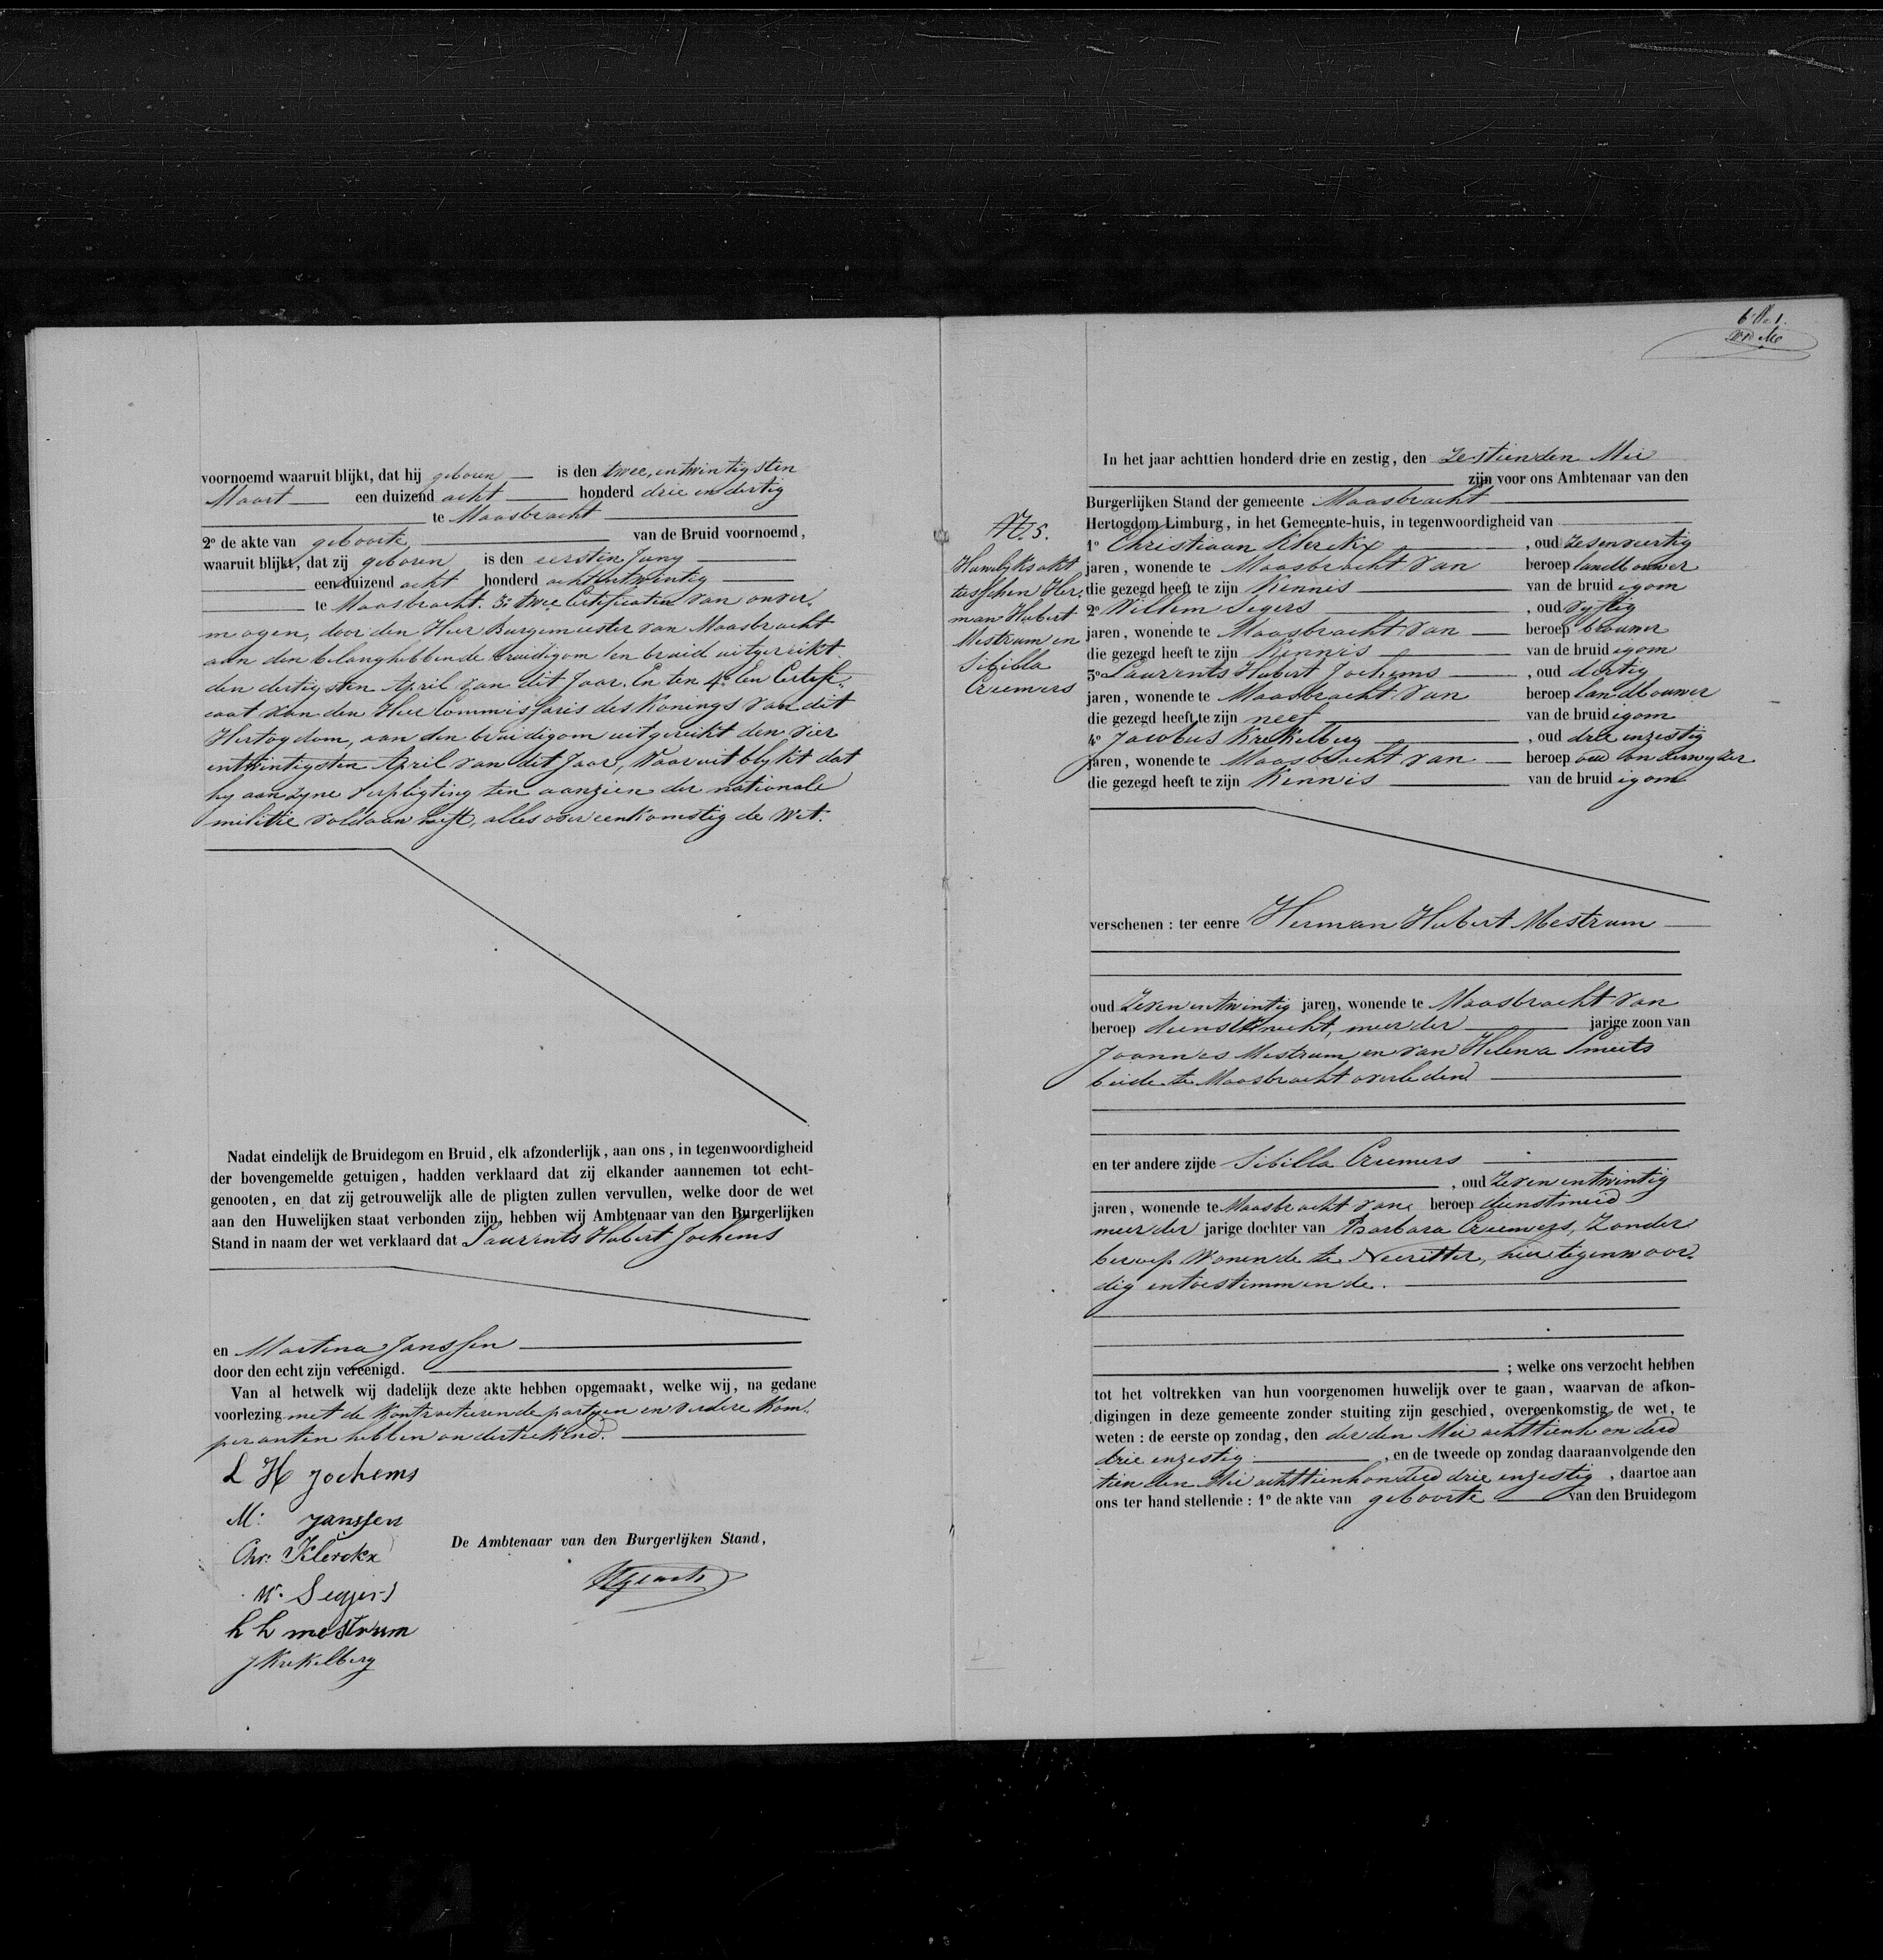 voornoemd waaruit blijkt, dat hij geboren is den twee, entwintigsten
Maart een duizend acht honderd drie en dertig
te Maasbracht
2o de akte van geboorte van de Bruid voornoemd,
waaruit blijkt, dat zij geboren is den eersten Juny
een duizend acht honderd achtentwintig
te Maasbracht. 3o twee Certificaten van onver,
mogen, door den Heer Burgemeester van Maasbracht
aan den belanghebbende bruidigom en bruid uitgereikt
den dertigsten April van dit Jaar. En ten 4o Een Certifi,
caat van den Heer Commissaris des Konings van dit
Hertogdom, aan den bruidigom uitgereikt den vier
entwintigsten April van dit Jaar, Waaruit blykt dat
hy aan zyne verpligting ten aanzien der nationale
militie voldaan heeft, alles overeenkomstig de Wet.
Nadat eindelijk de Bruidegom en Bruid, elk afzonderlijk, aan ons, in tegenwoordigheid
der bovengemelde getuigen, hadden verklaard dat zij elkander aannemen tot echt-
genooten, en dat zij getrouwelijk alle de pligten zullen vervullen, welke door de wet
aan den Huwelijken staat verbonden zijn, hebben wij Ambtenaar van den Burgerlijken
Stand in naam der wet verklaard dat Laurents Hubert Jochems
en Martina Janssen
door den echt zijn vereenigd.
Van al hetwelk wij dadelijk deze akte hebben opgemaakt, welke wij, na gedane
voorlezing met de Kontracteerende partyen en verdere Kom,
peranten hebben onderteekend.
L H Jochems
M: Janssen
Chr: Klerckx
De Ambtenaar van den Burgerlijken Stand,
W. Segers
h h mestrum
J Krekelberg
In het jaar achttien honderd drie en zestig, den Zestienden Mei
zijn voor ons Ambtenaar van den
Burgerlijken Stand der gemeente Maasbracht
Hertogdom Limburg, in het Gemeente-huis, in tegenwoordigheid van
No. 5.
Huwelyksakt
tusschen Her,
man Hubert
Mestrum en
Sibilla
Creemers
1o Christiaan Klerckx, oud Zesenveertig
jaren, wonende te Maasbracht van beroep landbouwer
die gezegd heeft te zijn Kennis van de bruid igom
2o Willem Segers, oud vyftig
jaren, wonende te Maasbracht van beroep brouwer
die gezegd heeft te zijn Kennis van de bruid igom
3o Laurents Hubert Jochems, oud dertig
jaren, wonende te Maasbracht van beroep landbouwer
die gezegd heeft te zijn neef van de bruid igom
4o Jacobus Krekelberg, oud drie enzestig
jaren, wonende te Maasbracht van beroep oud onderwyzer
die gezegd heeft te zijn Kennis van de bruid igom
verschenen : ter eenre Herman Hubert Mestrum
oud Zevenentwintig jaren, wonende te Maasbracht van
beroep dienstknecht, meerder jarige zoon van
Joannes Mestrum en van Helena Smeets
beide te Maasbracht overleden
en ter andere zijde Sibilla Creemers
, oud Zevenentwintig
jaren, wonende te Maasbracht van beroep dienstmeid
meerder jarige dochter van Barbara Creemers, Zonder
beroep Wonende te Neeritter, hier tegenwoor,
dig entoestemmende.
; welke ons verzocht hebben
tot het voltrekken van hun voorgenomen huwelijk over te gaan, waarvan de afkon-
digingen in deze gemeente zonder stuiting zijn geschied, overeenkomstig de wet, te
weten : de eerste op zondag, den derden Mei achttienhonderd
drie enzestig, en de tweede op zondag daaraanvolgende den
tienden Mei achttienhonderd drie enzestig, daartoe aan
ons ter hand stellende : 1o de akte van geboorte van den Bruidegom